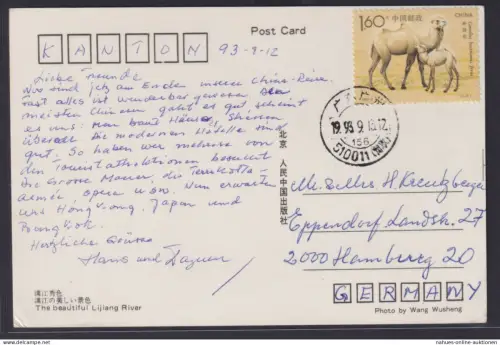 Post Card
KANTON 93-9-12
Liebe Freunde
Nun sind wir am Ende unserer China-Reise.
Fast alles ist wunderbar gewesen. Den
meisten Chinesen geht es gut scheint
es uns. Man baut Häuser, Strassen
überall. Die modernen Hotels sind
gut. So haben wir mehrere von
den Touristattraktionen besucht
Die Grosse Mauer, die Terrakotta-
armee, opera usw. Nun erwarten
uns Hong Kong, Japan und
Bangkok.
Herzliche Grüsse
Hans und
1.60元 中国邮政
CHINA
19.93.9.13.12
510011
北京 人民中国出版社
H. Kreutzberger
Eppendorf. Landstr. 27
2000 Hamburg 20
GERMANY
漓江秀色
漓江の美しい景色
The beautiful Lijiang River
Photo by Wang Wusheng